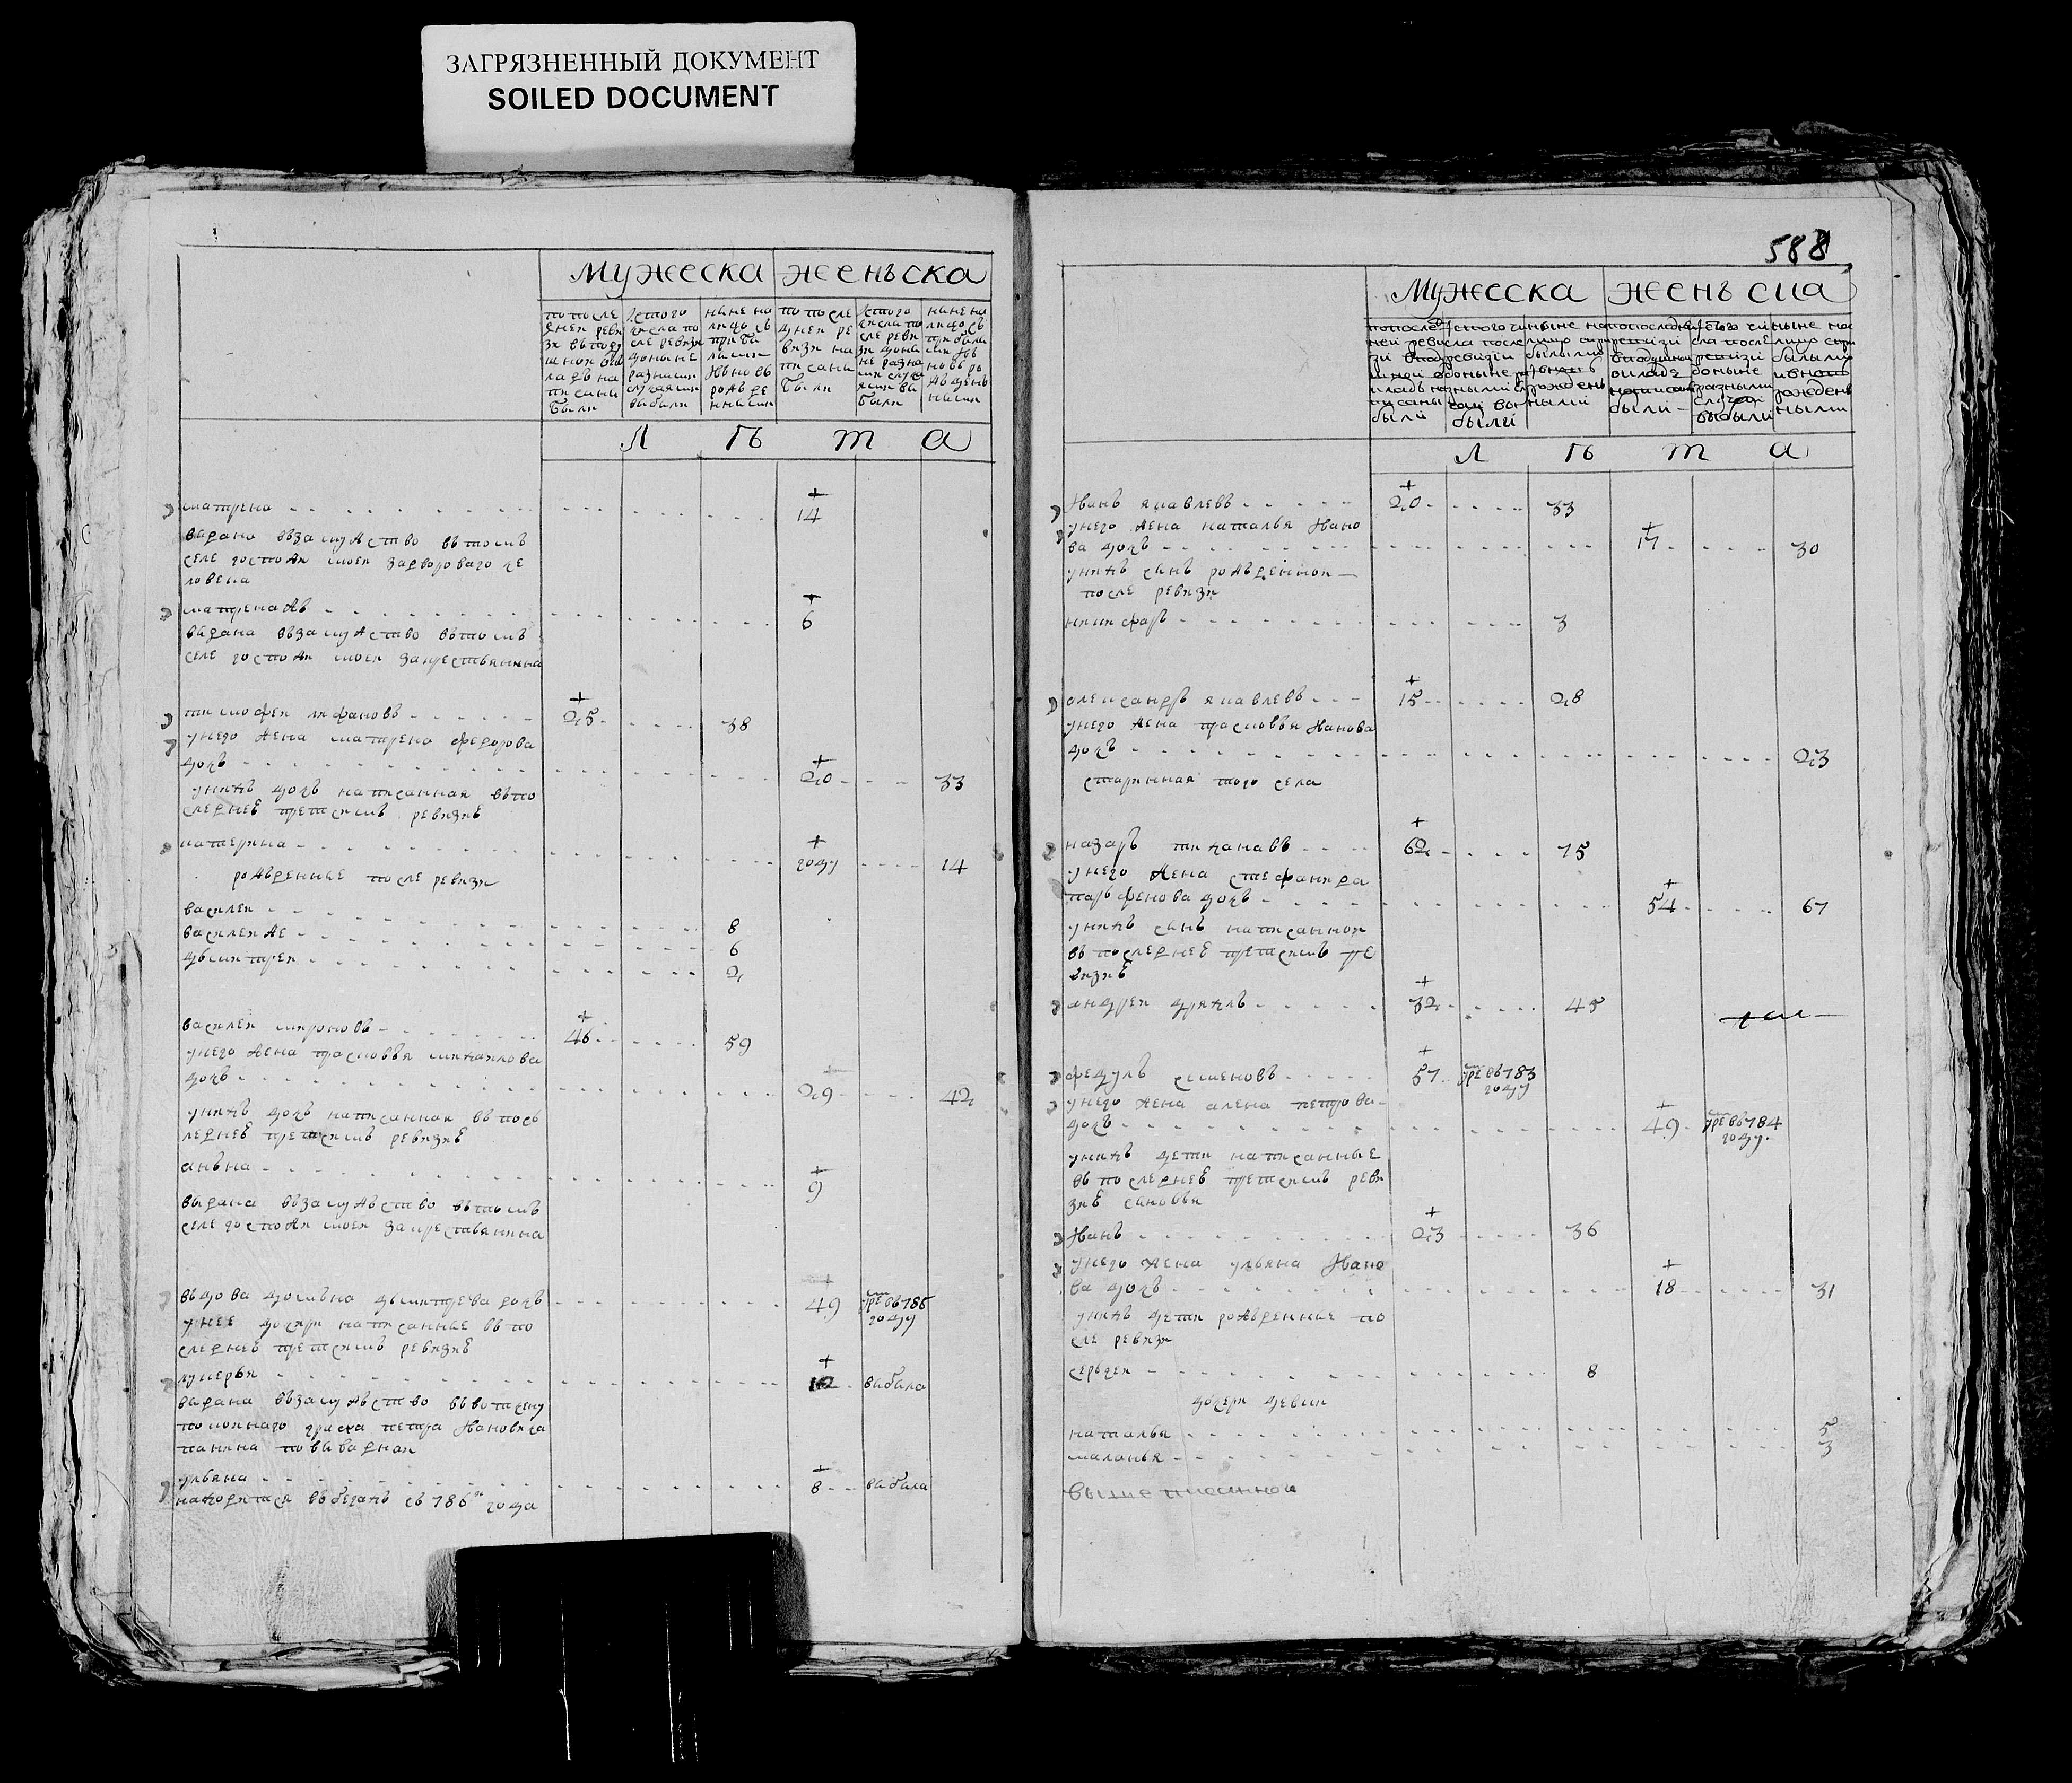 ЗАГРЯЗНЕННЫЙ ДОКУМЕНТ
SOILED DOCUMENT
Мужеска женъска
по после
днеи реви
зи в подушнои
окладъ на
писани
были
ис того
числа по
сле ревизи
доныне
разними
случаями
выбыли
ныне на
лицо съ
при бы
лыми
и вновь
рожде
нными
по после
днеи ре
визи на
писани
были
ис того
числа по
сле реви
зи доны
не разны
ми случа
ями вы
были
ныне на
лицо съ
прибылы
ми и в
новь ро
жденъ
ными
Л Ѣ Т А
матрена 14
выдана взамужство втомъ
селе госпожи моеи задворового че
ловека
матрена жъ 6
выдана взамужство втомъ
селе госпожи моеи за крестьянина
тимофеи лифановъ 25 38
у него жена матрена федорова
дочь 20 33
у нихъ дочь написанная в по
следнеи предсимъ ревизиѣ
катерина году 14
рожденные после ревизи
василеи 8
василеи же 6
дмитреи 2
василеи мироновъ 46 59
у него жена прасковья михаилова
дочь 29 42
у нихъ дочь написанная в посъ
леднеи предсимъ ревизиѣ
анъна 9
выдана взамужство втомъ
селе госпожи моеи за крестьянина
въдова домъна дмитрева дочь 49 умре въ 786
году
у нее дочери написанные в по
следнеи предсимъ ревизиѣ
лукерья 12 выбыла
выдана взамужство в вотчену
покоинаго графа петра ивановича
панина по выводнои
ульяна 8 выбыла
находитца в бегахъ съ 786 го года
588
Мужеска женъска
по после
днеи реви
зи в поду
шнои о
кладъ на
писаны
были
ис того чи
сла после
ревизии
доныне ра
зными слу
чаи вы
были
ныне на
лицо спри
былыми
и вновь
рожденъ
ными
по последнеи
ревизии
в подушнои
окладъ
написаны
были
ис того чи
сла после
ревизи
доныне
разными
случаи
выбыли
ныне на
лицо спри
былыми
и вновь
рожденъ
ными
Л Ѣ Т А
Иванъ яковлевъ 20 33
у него жена наталья Ивано
ва дочь 17 30
у нихъ сынъ рожденнои
после ревизи
никифаръ 3
олександръ яковлевъ 15 28
у него жена прасковьи Иванова
дочь 23
старинная того села
назаръ тихановъ 62 75
у него жена стефанида
парфенова дочь 54 67
у нихъ сынъ написаннои
в последнеи предсимъ ре
визиѣ
андреи дряхлъ 32 45
федулъ семеновъ 57 умре въ 783
году
у него жена алена петрова
дочь 49 умре въ 784
году
у нихъ дети написанные
в последнеи предсимъ реви
зиѣ сыновьи
Иванъ 23 36
у него жена ульяна Ивано
ва дочь 18 31
у нихъ дети рожденные по
сле ревизи
сергеи 8
дочери девки
наталья 5
маланья 3